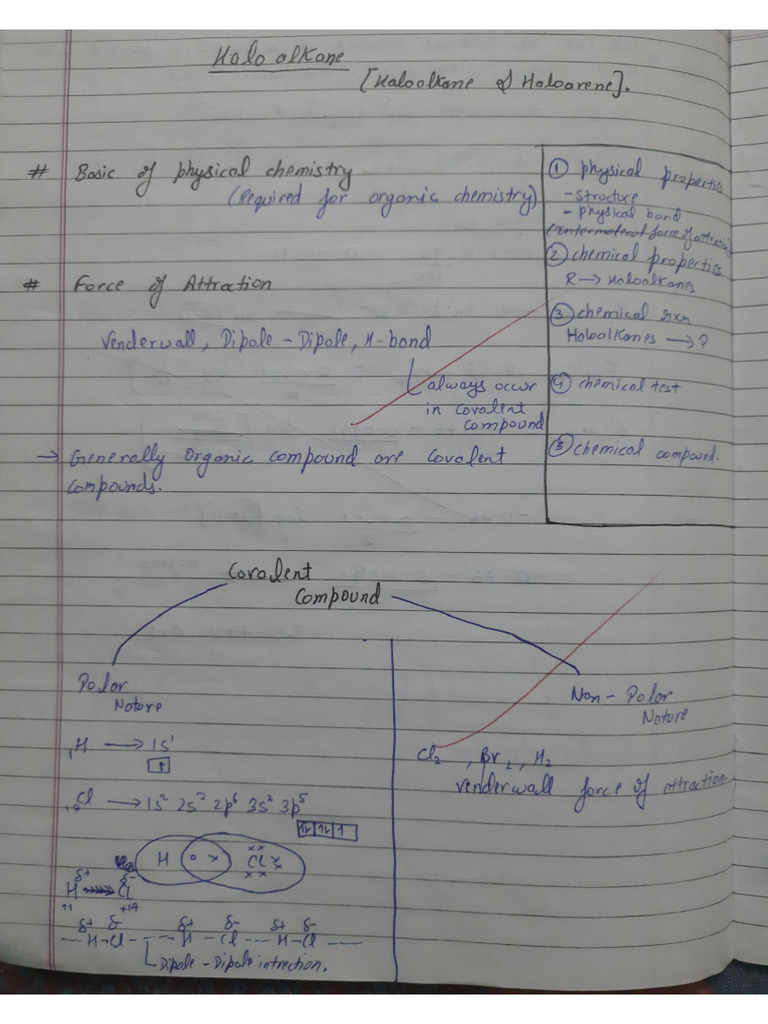 Haloalkane
[Haloalkane & Haloarene].
# Basic of physical chemistry
(Required for organic chemistry)
① physical propertie
- Structure
- physical bond
(Intermolecul force of attraction
② chemical properties
R → Haloalkanes
③ chemical rxn
Haloalkanes → ?
④ chemical test
⑤ chemical compound.
# Force of Attraction
Venderwall, Dipole - Dipole, H-bond
always occur
in covalent
compound
→ Generally organic compound are covalent
compounds.
Covalent
Compound
Polar
Nature
₁H → 1s¹
↑
Cl → 1s² 2s² 2p⁶ 3s² 3p⁵
⇅ ⇅ ↑
H o x Cl
δ+ δ-
H Cl
+1 +17
δ+ δ- δ+ δ- δ+ δ-
--- H-Cl --- H - Cl --- H-Cl ---
Dipole - Dipole intrection.
Non - Polar
Nature
Cl₂, Br₂, H₂
Venderwall force of attraction